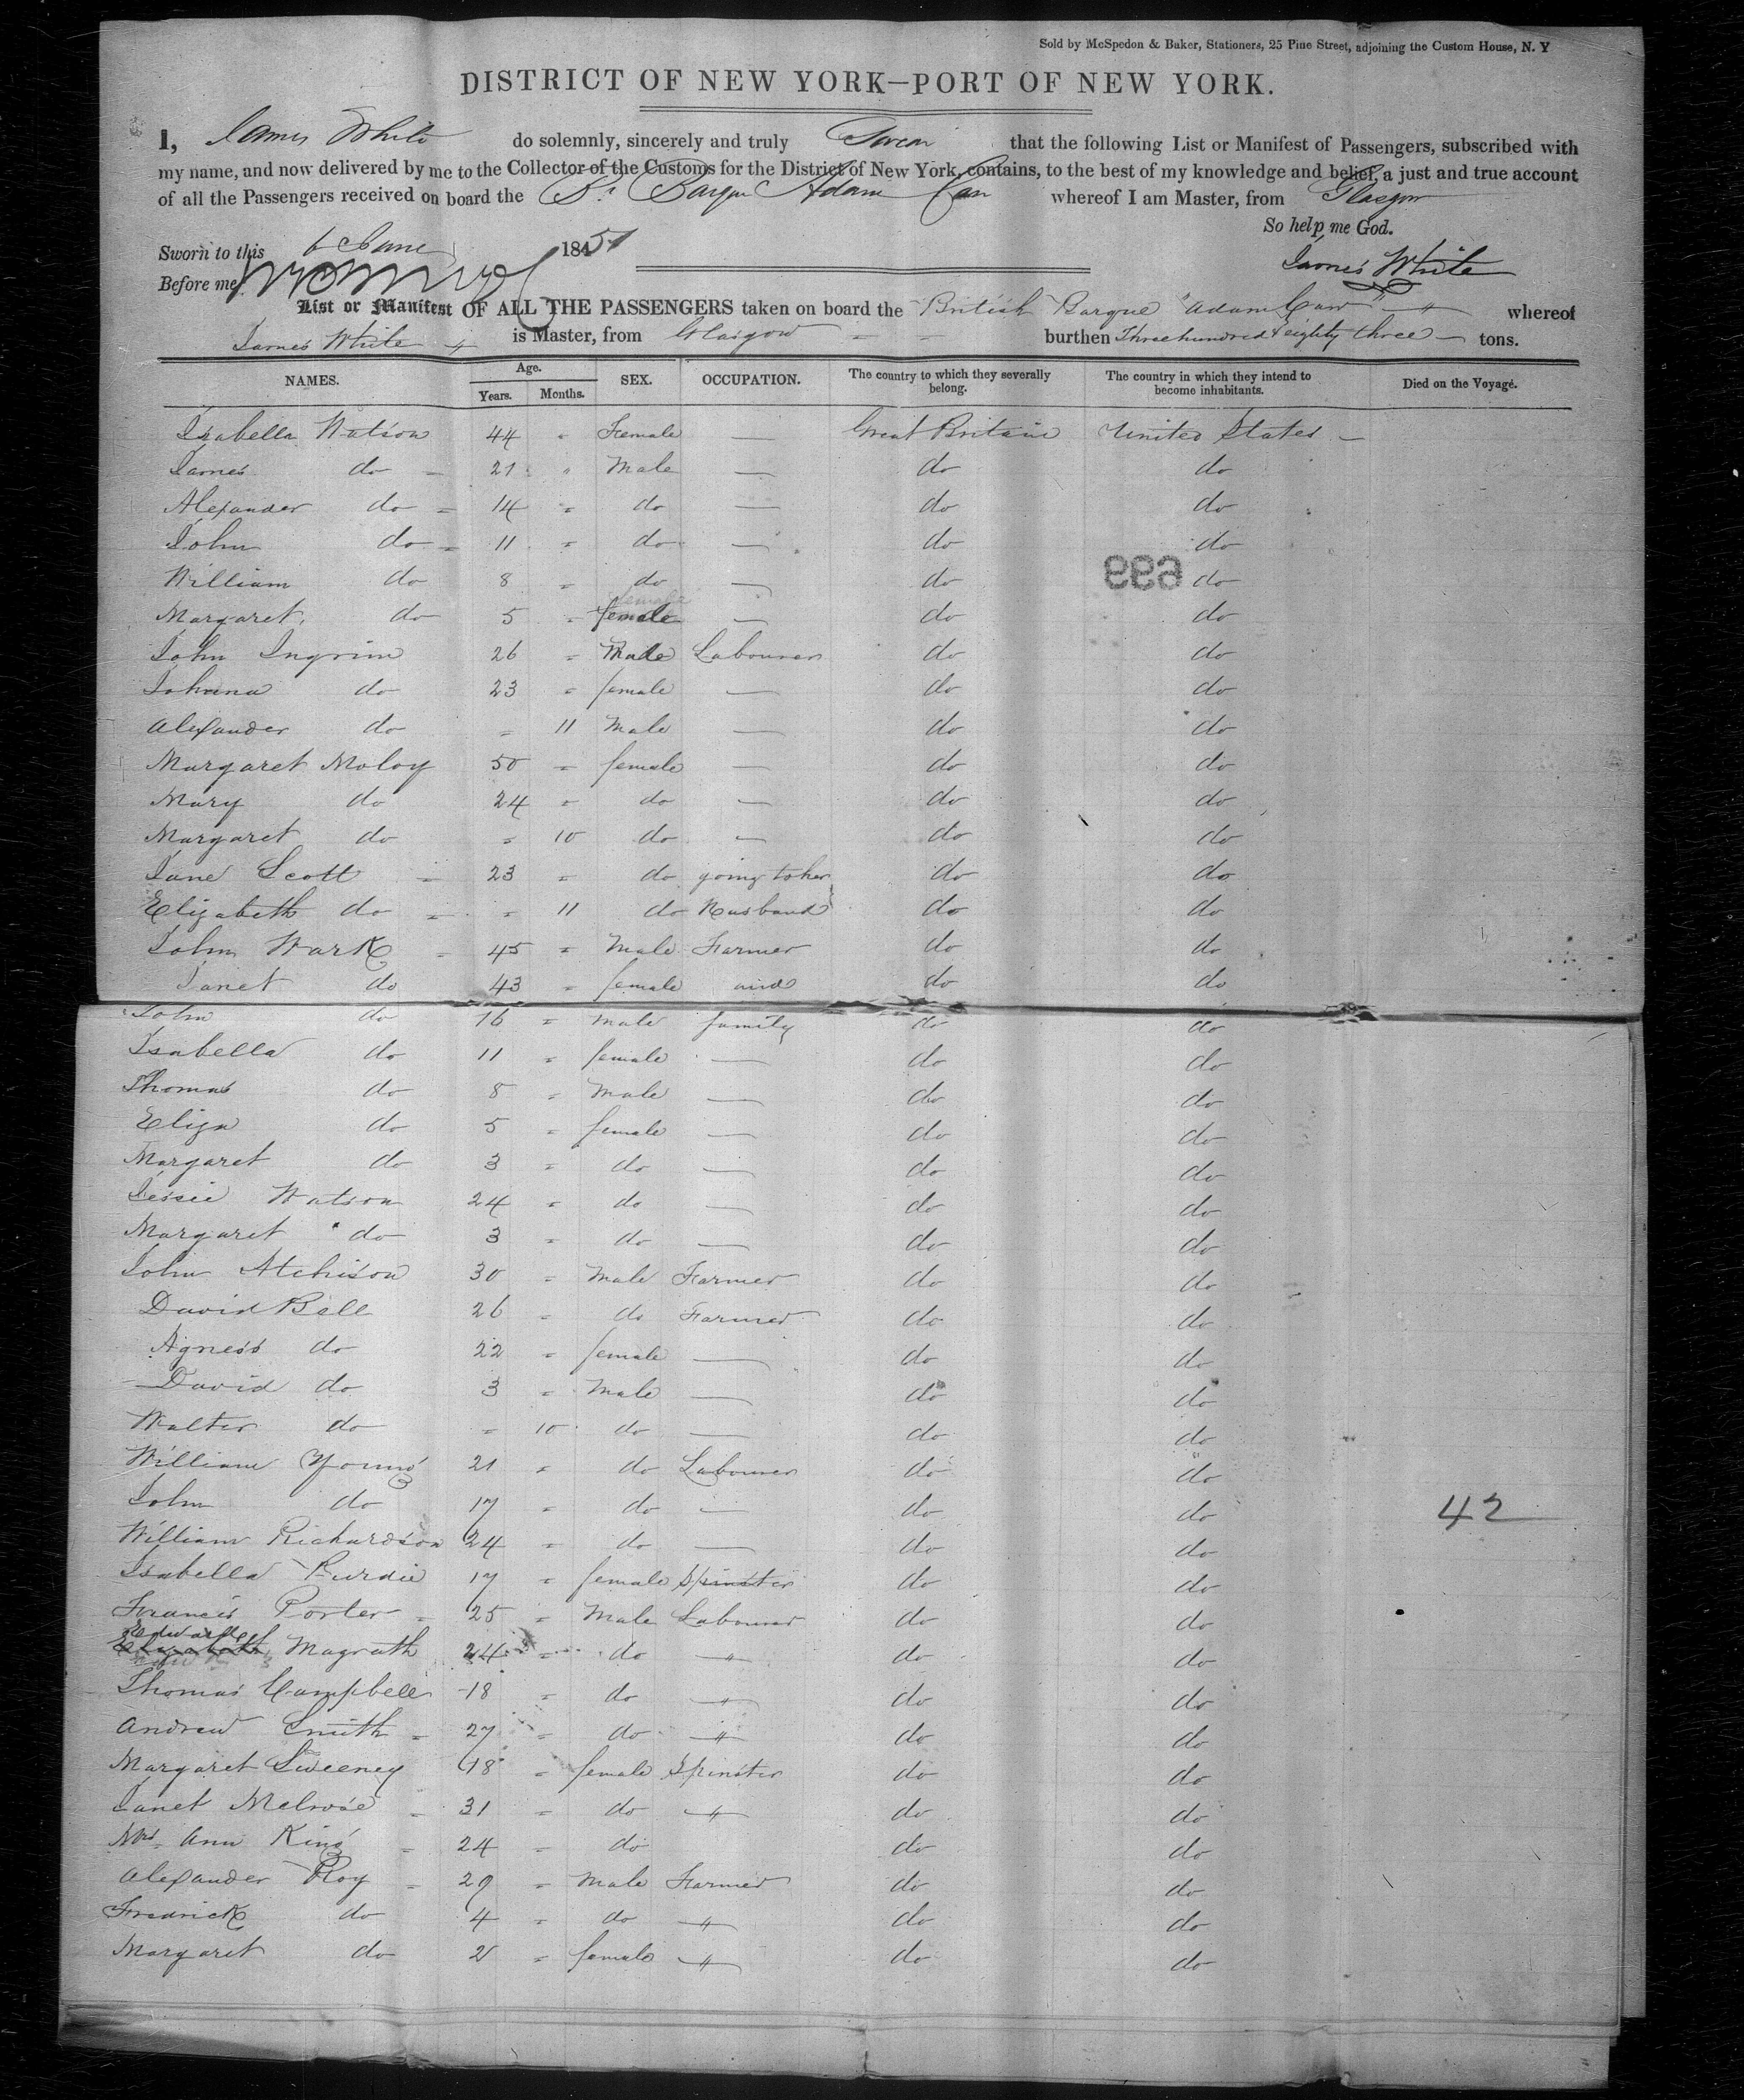 Sold by McSpedon & Baker, Stationers, 25 Pine Street, adjoining the Custom House, N. Y
DISTRICT OF NEW YORK—PORT OF NEW YORK.
I, James White do solemnly, sincerely and truly Swear that the following List or Manifest of Passengers, subscribed with
my name, and now delivered by me to the Collector of the Customs for the District of New York, contains, to the best of my knowledge and belief, a just and true account
of all the Passengers received on board the Br Barque Adam Carr whereof I am Master, from Glasgow
So help me God.
Sworn to this 6 June 1851
James White
Before me
List or Manifest OF ALL THE PASSENGERS taken on board the British Barque "Adam Carr" " whereof
James White " is Master, from Glasgow burthen Three hundred & eighty three — tons.
NAMES. Age. Years. Months. SEX. OCCUPATION. The country to which they severally belong. The country in which they intend to become inhabitants. Died on the Voyage.
Isabella Watson 44 " Female — Great Britain United States —
James do 21 " Male — do do
Alexander do 14 " do — do do
John do 11 " do — do do
William do 8 " do — do do
699
Margaret do 5 " female — do do
John Ingrim 26 " Male Labourer do do
Johana do 23 " female — do do
Alexander do " 11 Male — do do
Margaret Moloy 50 " female — do do
Mary do 24 " do — do do
Margaret do " 10 do — do do
Jane Scott 23 " do going to her do do
Elizabeth do " 11 do Husband do do
John Wark 45 " Male Farmer do do
Janet do 43 " female and do do
John do 16 " Male family do do
Isabella do 11 " female — do do
Thomas do 8 " Male — do do
Eliza do 5 " female — do do
Margaret do 3 " do — do do
Jessie Watson 24 " do — do do
Margaret do 3 " do — do do
John Atchison 30 " Male Farmer do do
David Bell 26 " do Farmer do do
Agness do 22 " female — do do
David do 3 " Male — do do
Walter do " 10 do — do do
William Young 21 " do Labourer do do
John do 17 " do — do do 42
William Richardson 24 " do — do do
Isabella Purdie 17 " female Spinster do do
Francis Porter 25 " Male Labourer do do
Edward
Elizabeth Magrath 24 " do " do do
Thomas Campbell 18 " do " do do
Andrew Smith 27 " do " do do
Margaret Sweeney 18 " female Spinster do do
Janet Melrose 31 " do " do do
Mrs Ann King 24 " do do do
Alexander Roy 29 " Male Farmer do do
Fredrick do 4 " do " do do
Margaret do 2 " female " do do